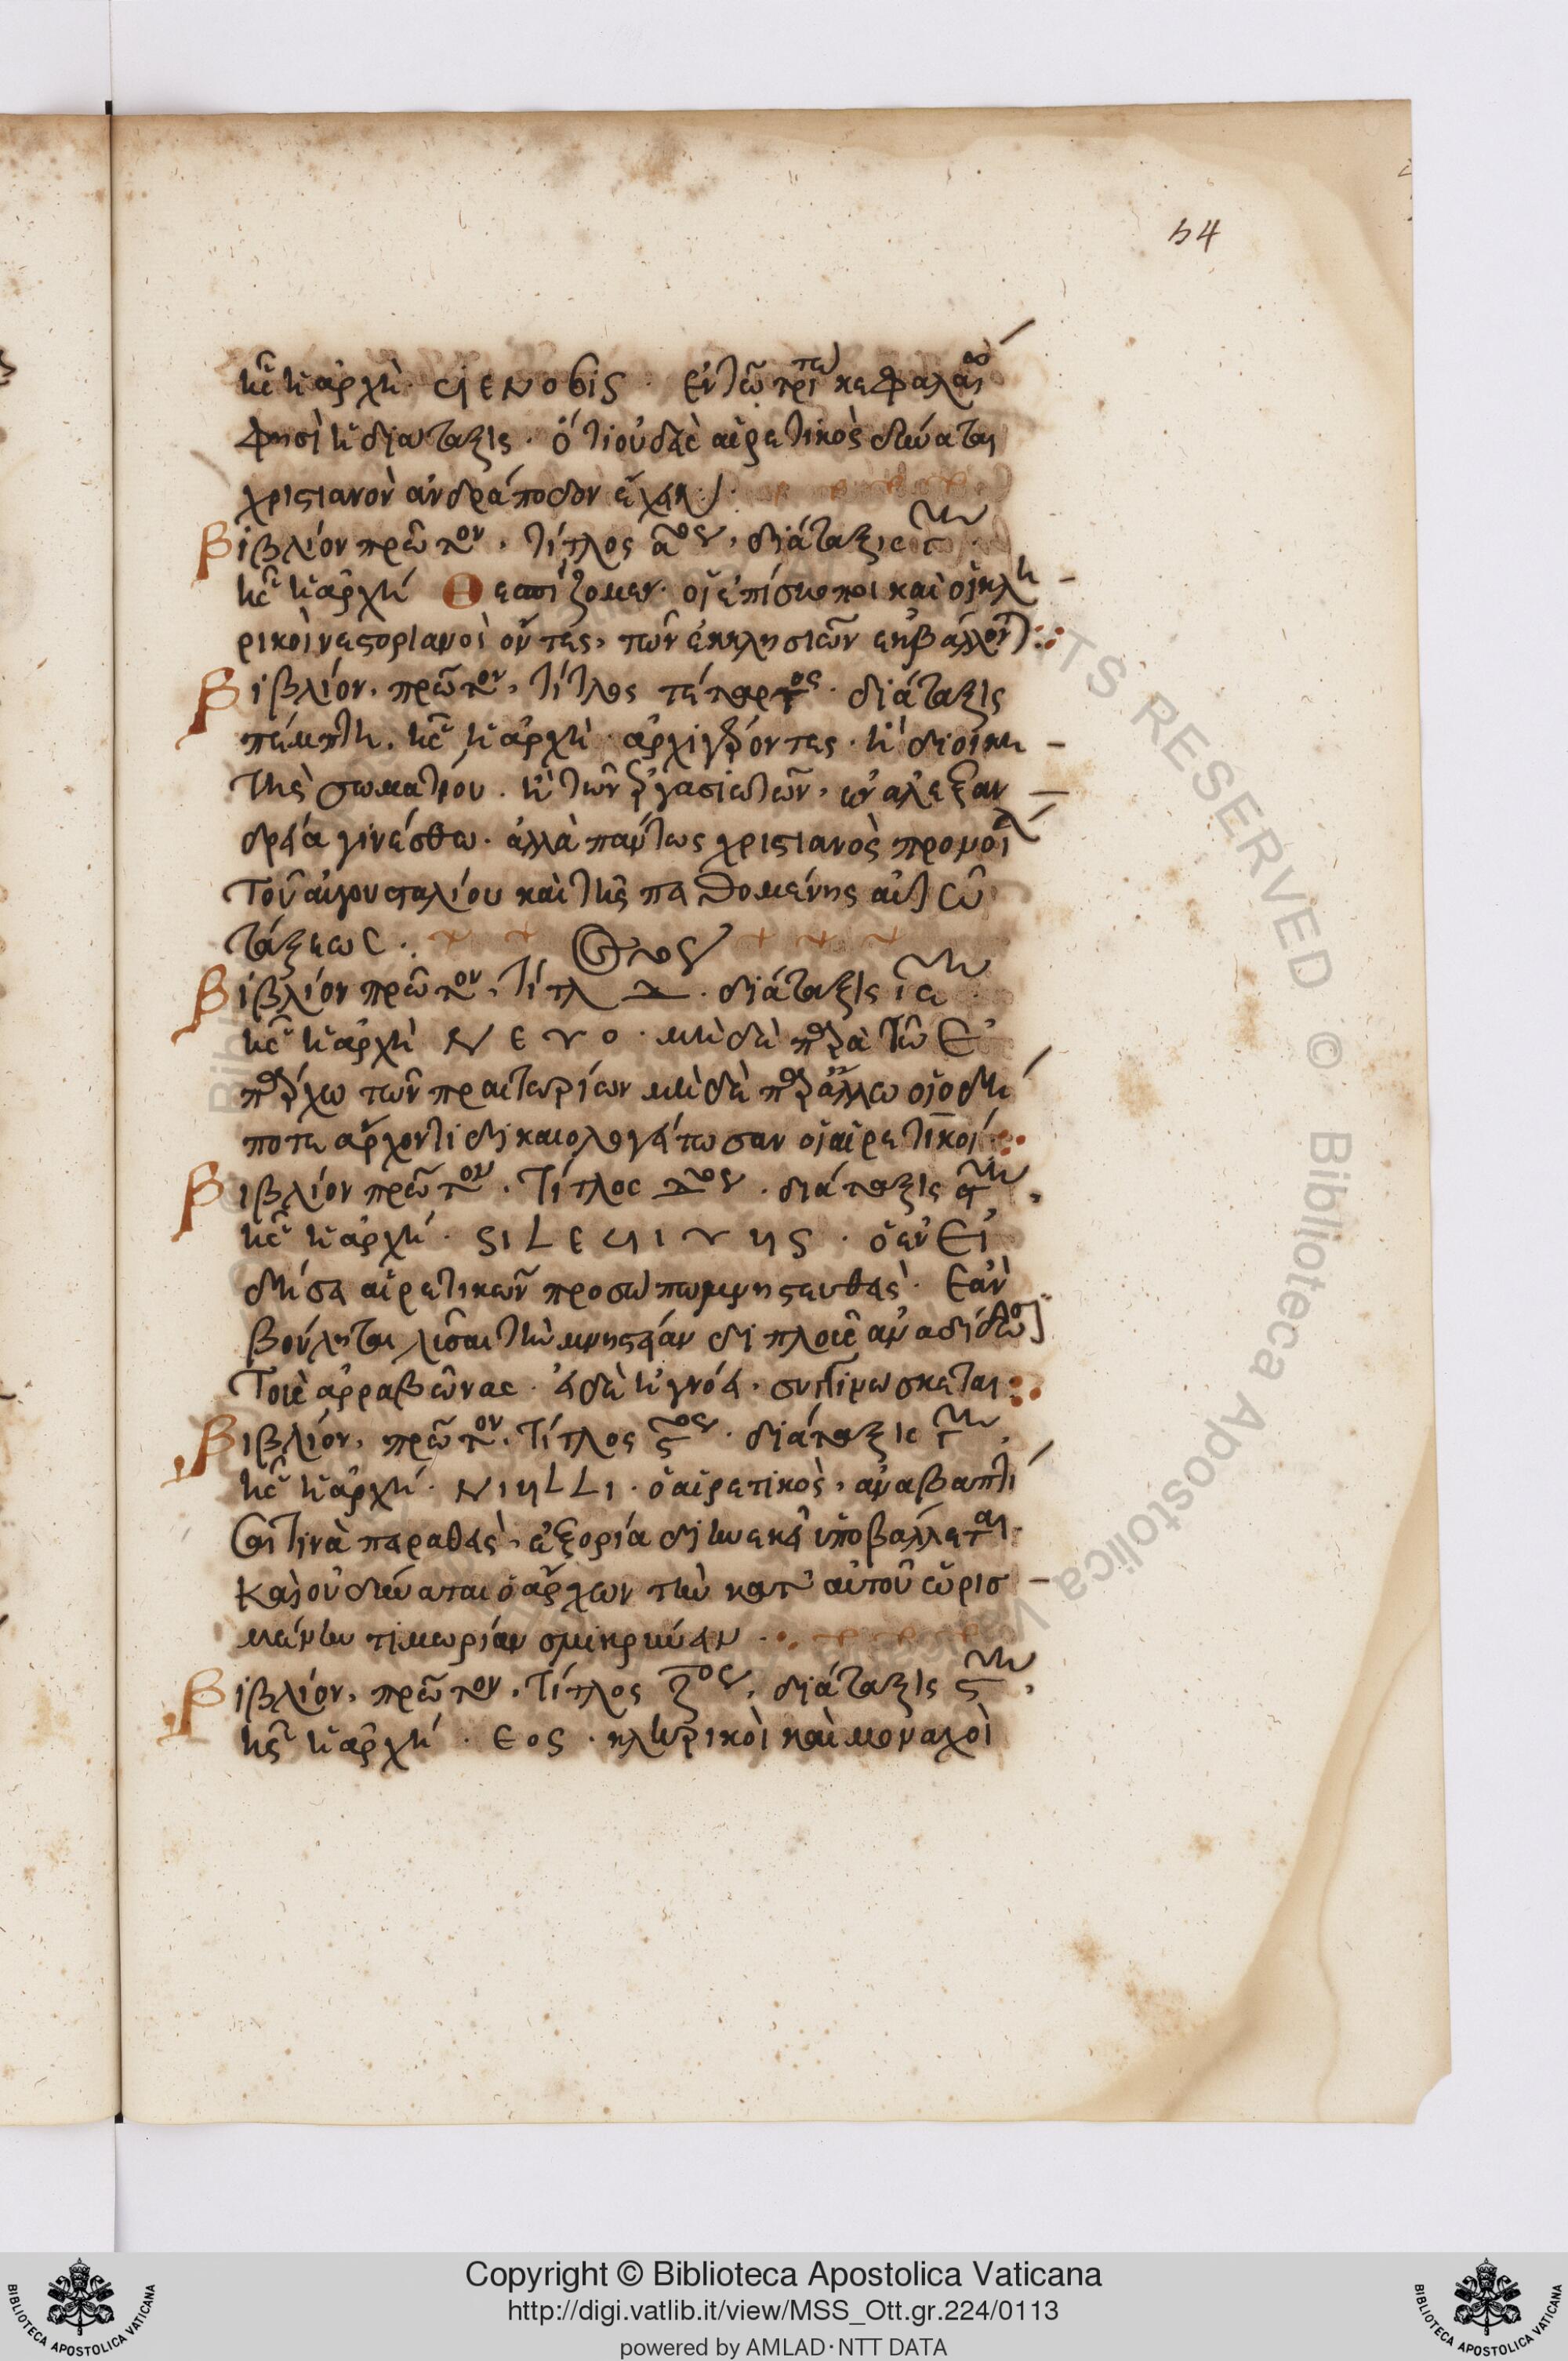 54
ἧς ἡ ἀρχὴ · CIENOBIS · ἐν τῶ τρίτω κεφαλαίω
φησὶ ἡ διάταξις · ὅτι οὐδεὶς αἱρετικὸς δύναται
χριστιανὸν ἀνδράποδον ἔχειν
Βιβλίον πρῶτον · τίτλος αος · διάταξις γη ·
ἧς ἡ ἀρχή Θεσπίζομεν · οἱ ἐπίσκοποι καὶ οἱ κλη
ρικοὶ νεστοριανοὶ ὄντες, τῶν ἐκκλησιῶν ἐκβάλλοντ
Βιβλίον · πρῶτον · τίτλος τέταρτος · διάταξις
πέμπτη · ἧς ἡ ἀρχὴ · ἀρχιγέροντες · ἢ διοικη
τὴς σωματίου · ἢ τῶν ἐργασιωτῶν · ἐν ἀλεξαν
δρεία γινέσθω · ἀλλὰ πάντως χριστιανὸς προνοία
τοῦ αὐγουσταλίου καὶ τῆς πειθομένης αὐτῶ
τάξεως ·
Βιβλίον πρῶτον · τίτλ δος · διάταξις ιεη
ἧς ἡ ἀρχὴ NEMO · μηδὲ παρὰ τῶ
ἐπάρχω τῶν πραιτωρίων μηδὲ παρ' ἄλλω οἱωδή
ποτε ἄρχοντι δικαιολογείτωσαν οἱ αἱρετικοί
Βιβλίον πρῶτον · τίτλος δος · διάταξις
ἧς ἡ ἀρχή ·
αἱρετικῶν προσώπω μνηστευθεὶς · ἐὰν
βούληται λῦσαι τὴν μνηστείαν διπλοῦς ἀναδίδωσι
τοὺς ἀρραβῶνας · εἰ δὲ ἠγνόει · συγγινώσκεται
Βιβλίον · πρῶτον · τίτλος ςος · διάταξις γη ·
ἧς ἡ ἀρχή · NIHLLI · ὁ αἱρετικὸς, ἀναβαπτί
σαι τινὰ πειραθεὶς, ἐξορία διηνεκεῖ ὑποβάλλεται
καὶ οὐ δύναται ὁ ἄρχων τὴν κατ' αὐτοῦ ὡρισ
μένην τιμωρίαν σμικρύνειν ·
Βιβλίον · πρῶτον · τίτλος ζος · διάταξις ςη ·
ἧς ἡ ἀρχή · EOS · κληρικοὶ καὶ μοναχοὶ
Copyright © Biblioteca Apostolica Vaticana
http://digi.vatlib.it/view/MSS_Ott.gr.224/0113
powered by AMLAD·NTT DATA
BIBLIOTECA APOSTOLICA VATICANA
BIBLIOTECA APOSTOLICA VATICANA